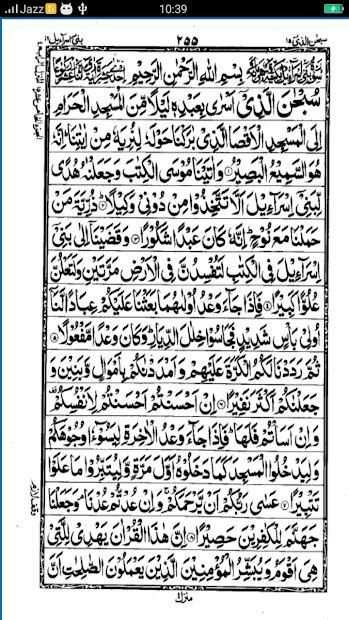 .ıllJazz 10:39
سبحن الذی ۱۵ ۲۵۵ بنی اسراءیل ۱۷
بِسْمِ اللهِ الرَّحْمٰنِ الرَّحِيْمِ
سُبْحٰنَ الَّذِيْۤ اَسْرٰى بِعَبْدِهٖ لَيْلًا مِّنَ الْمَسْجِدِ الْحَرَامِ
اِلَى الْمَسْجِدِ الْاَقْصَا الَّذِيْ بٰرَكْنَا حَوْلَهٗ لِنُرِيَهٗ مِنْ اٰيٰتِنَا ؕ اِنَّهٗ
هُوَ السَّمِيْعُ الْبَصِيْرُ ۝۱ وَ اٰتَيْنَا مُوْسَى الْكِتٰبَ وَ جَعَلْنٰهُ هُدًى
لِّبَنِيْۤ اِسْرَآءِيْلَ اَلَّا تَتَّخِذُوْا مِنْ دُوْنِيْ وَكِيْلًا ۝۲ ذُرِّيَّةَ مَنْ
حَمَلْنَا مَعَ نُوْحٍ ؕ اِنَّهٗ كَانَ عَبْدًا شَكُوْرًا ۝۳ وَ قَضَيْنَاۤ اِلٰى بَنِيْۤ
اِسْرَآءِيْلَ فِي الْكِتٰبِ لَتُفْسِدُنَّ فِي الْاَرْضِ مَرَّتَيْنِ وَ لَتَعْلُنَّ
عُلُوًّا كَبِيْرًا ۝۴ فَاِذَا جَآءَ وَعْدُ اُوْلٰىهُمَا بَعَثْنَا عَلَيْكُمْ عِبَادًا لَّنَاۤ
اُولِيْ بَاْسٍ شَدِيْدٍ فَجَاسُوْا خِلٰلَ الدِّيَارِ ؕ وَ كَانَ وَعْدًا مَّفْعُوْلًا ۝۵
ثُمَّ رَدَدْنَا لَكُمُ الْكَرَّةَ عَلَيْهِمْ وَ اَمْدَدْنٰكُمْ بِاَمْوَالٍ وَّ بَنِيْنَ وَ
جَعَلْنٰكُمْ اَكْثَرَ نَفِيْرًا ۝۶ اِنْ اَحْسَنْتُمْ اَحْسَنْتُمْ لِاَنْفُسِكُمْ
وَ اِنْ اَسَاْتُمْ فَلَهَا ؕ فَاِذَا جَآءَ وَعْدُ الْاٰخِرَةِ لِيَسُوْٓءٗا وُجُوْهَكُمْ
وَ لِيَدْخُلُوا الْمَسْجِدَ كَمَا دَخَلُوْهُ اَوَّلَ مَرَّةٍ وَّ لِيُتَبِّرُوْا مَا عَلَوْا
تَتْبِيْرًا ۝۷ عَسٰى رَبُّكُمْ اَنْ يَّرْحَمَكُمْ ۚ وَ اِنْ عُدْتُّمْ عُدْنَا ۘ وَ جَعَلْنَا
جَهَنَّمَ لِلْكٰفِرِيْنَ حَصِيْرًا ۝۸ اِنَّ هٰذَا الْقُرْاٰنَ يَهْدِيْ لِلَّتِيْ
هِيَ اَقْوَمُ وَ يُبَشِّرُ الْمُؤْمِنِيْنَ الَّذِيْنَ يَعْمَلُوْنَ الصّٰلِحٰتِ اَنَّ
منزل